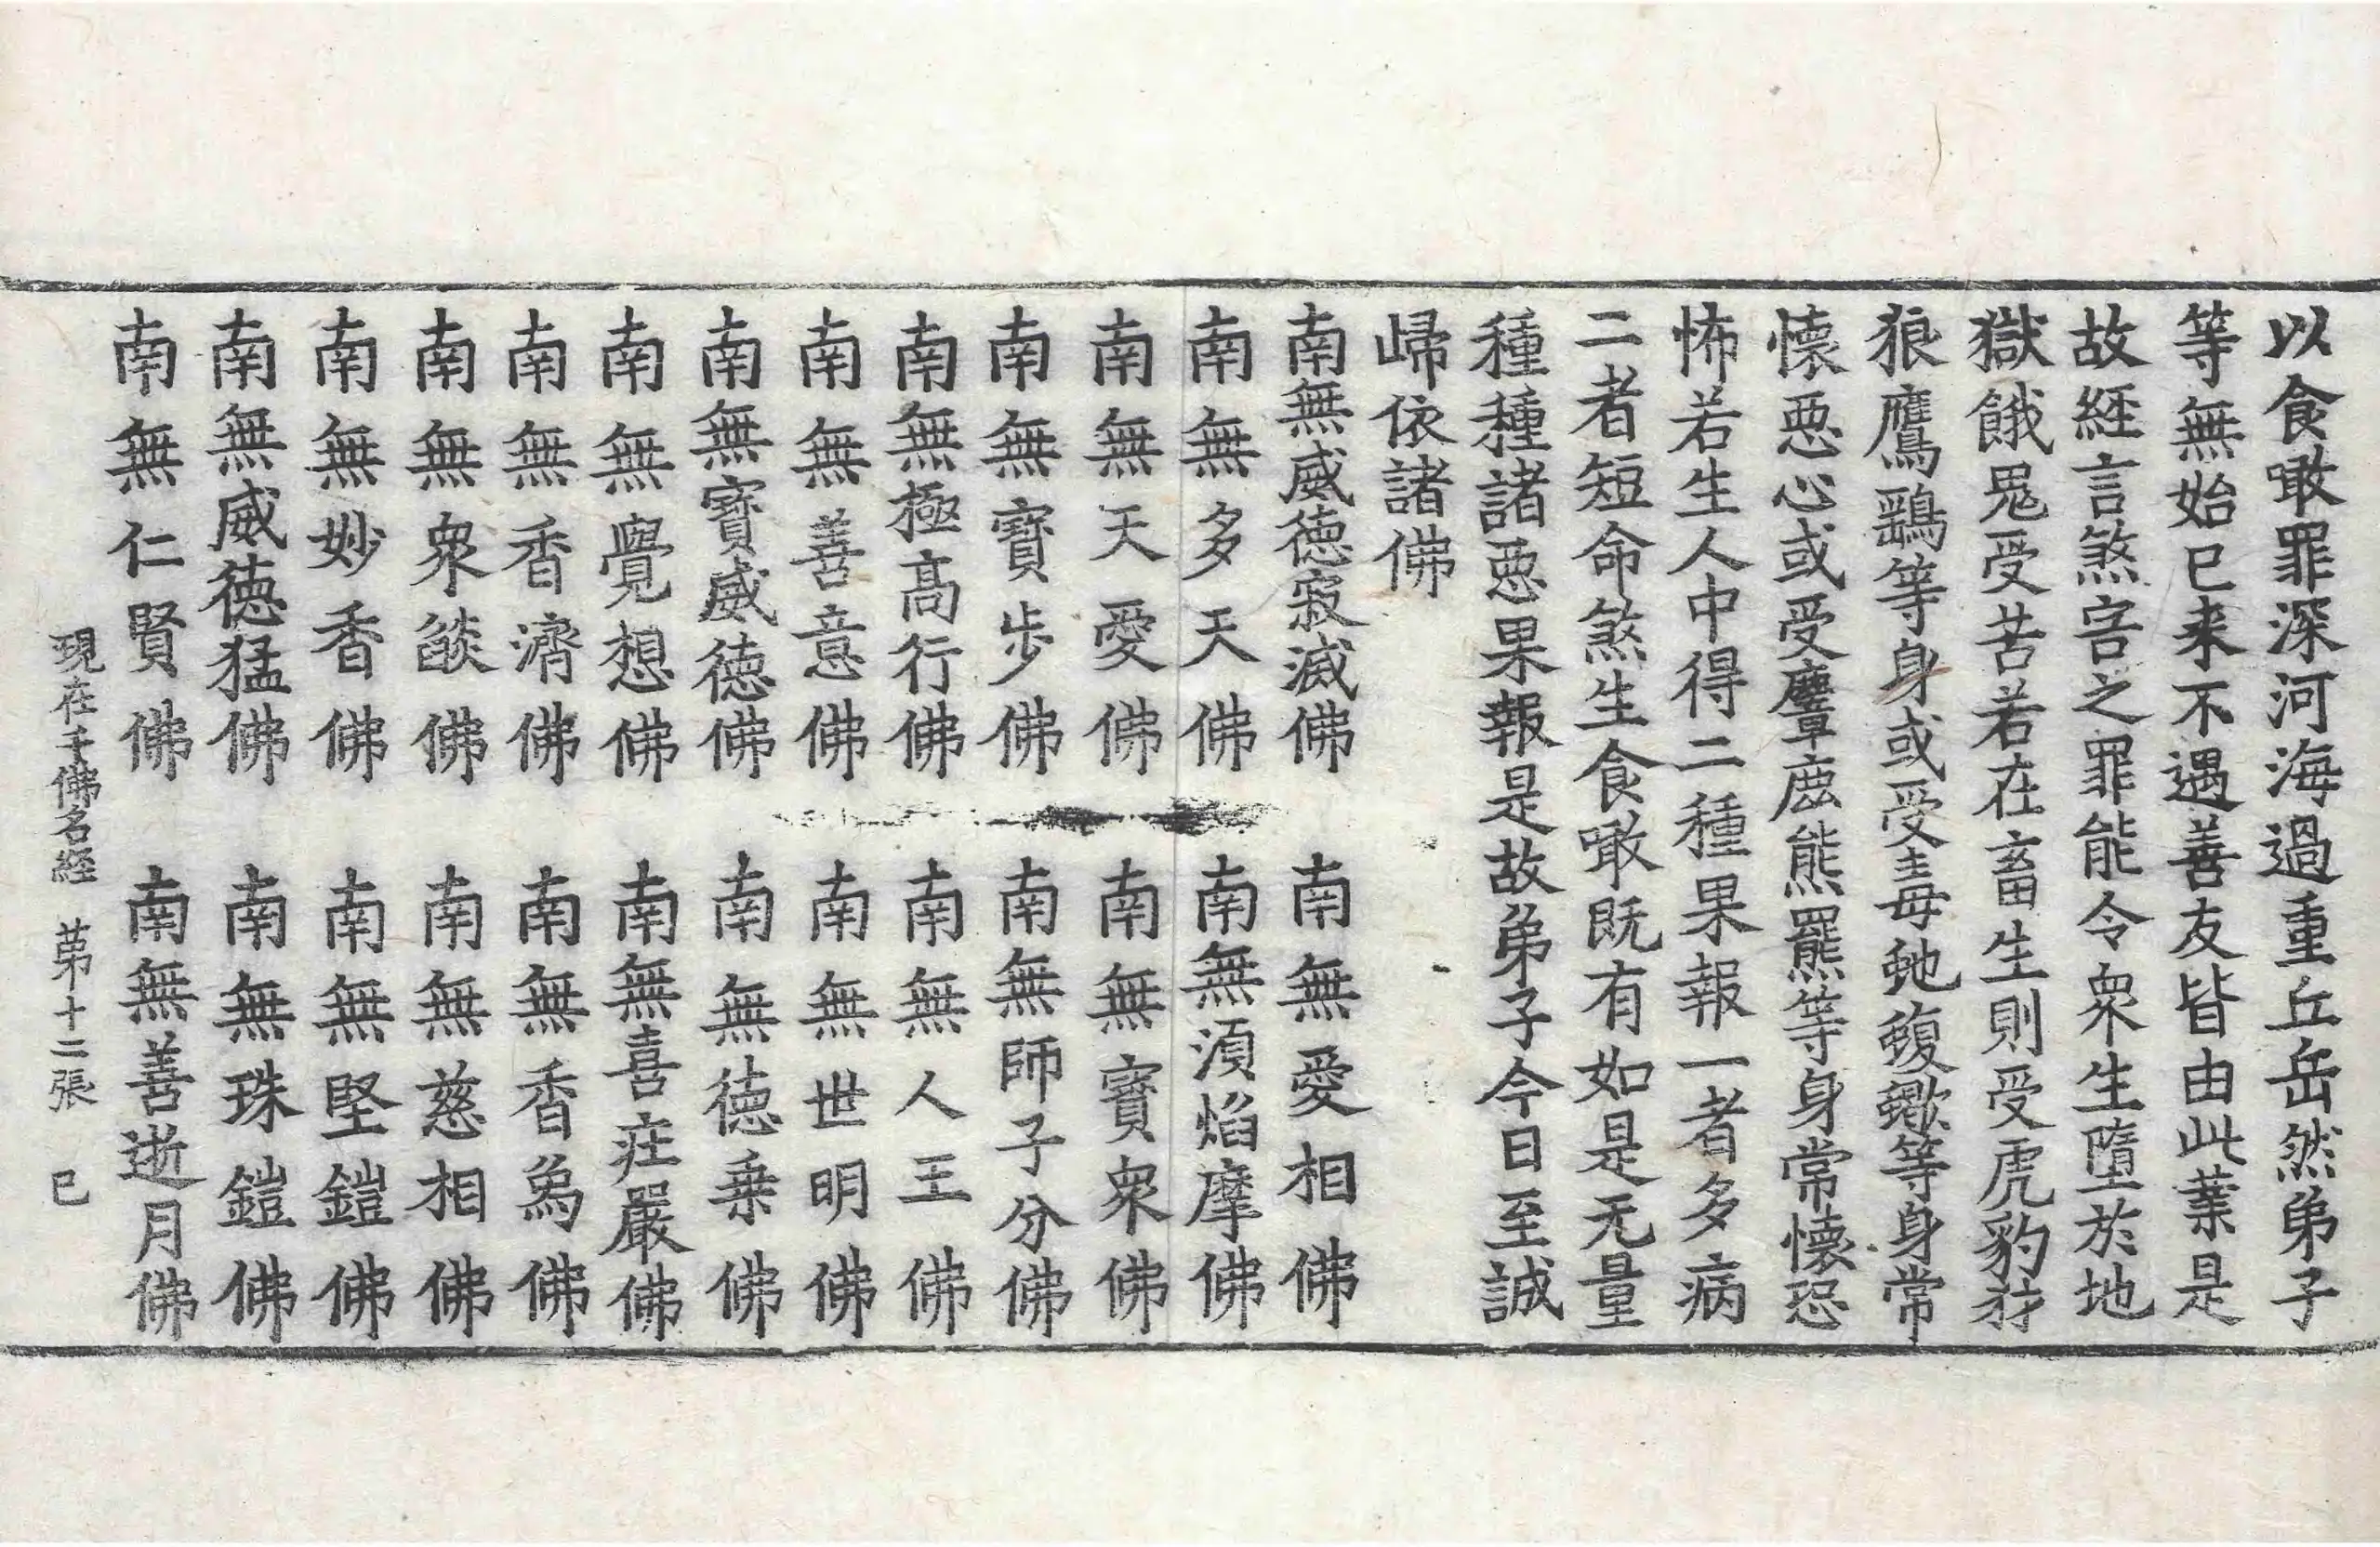 以食噉罪深河海過重丘岳然弟子
等無始已来不遇善友皆由此業是
故経言煞害之罪能令衆生墮於地
獄餓鬼受苦若在畜生則受虎豹犲
狼鷹鷂等身或受毒虵蝮蠍等身常
懷惡心或受麞鹿熊羆等身常懷恐
怖若生人中得二種果報一者多病
二者短命煞生食噉既有如是无量
種種諸惡果報是故弟子今日至誠
歸依諸佛
南無威德寂滅佛 南無愛相佛
南無多天佛 南無須焰摩佛
南無天愛佛 南無寶衆佛
南無寶步佛 南無師子分佛
南無極高行佛 南無人王佛
南無善意佛 南無世明佛
南無寶威德佛 南無德乗佛
南無覺想佛 南無喜莊嚴佛
南無香濟佛 南無香象佛
南無衆燄佛 南無慈相佛
南無妙香佛 南無堅鎧佛
南無威德猛佛 南無珠鎧佛
南無仁賢佛 南無善逝月佛
現在千佛名経 苐十二張 巳